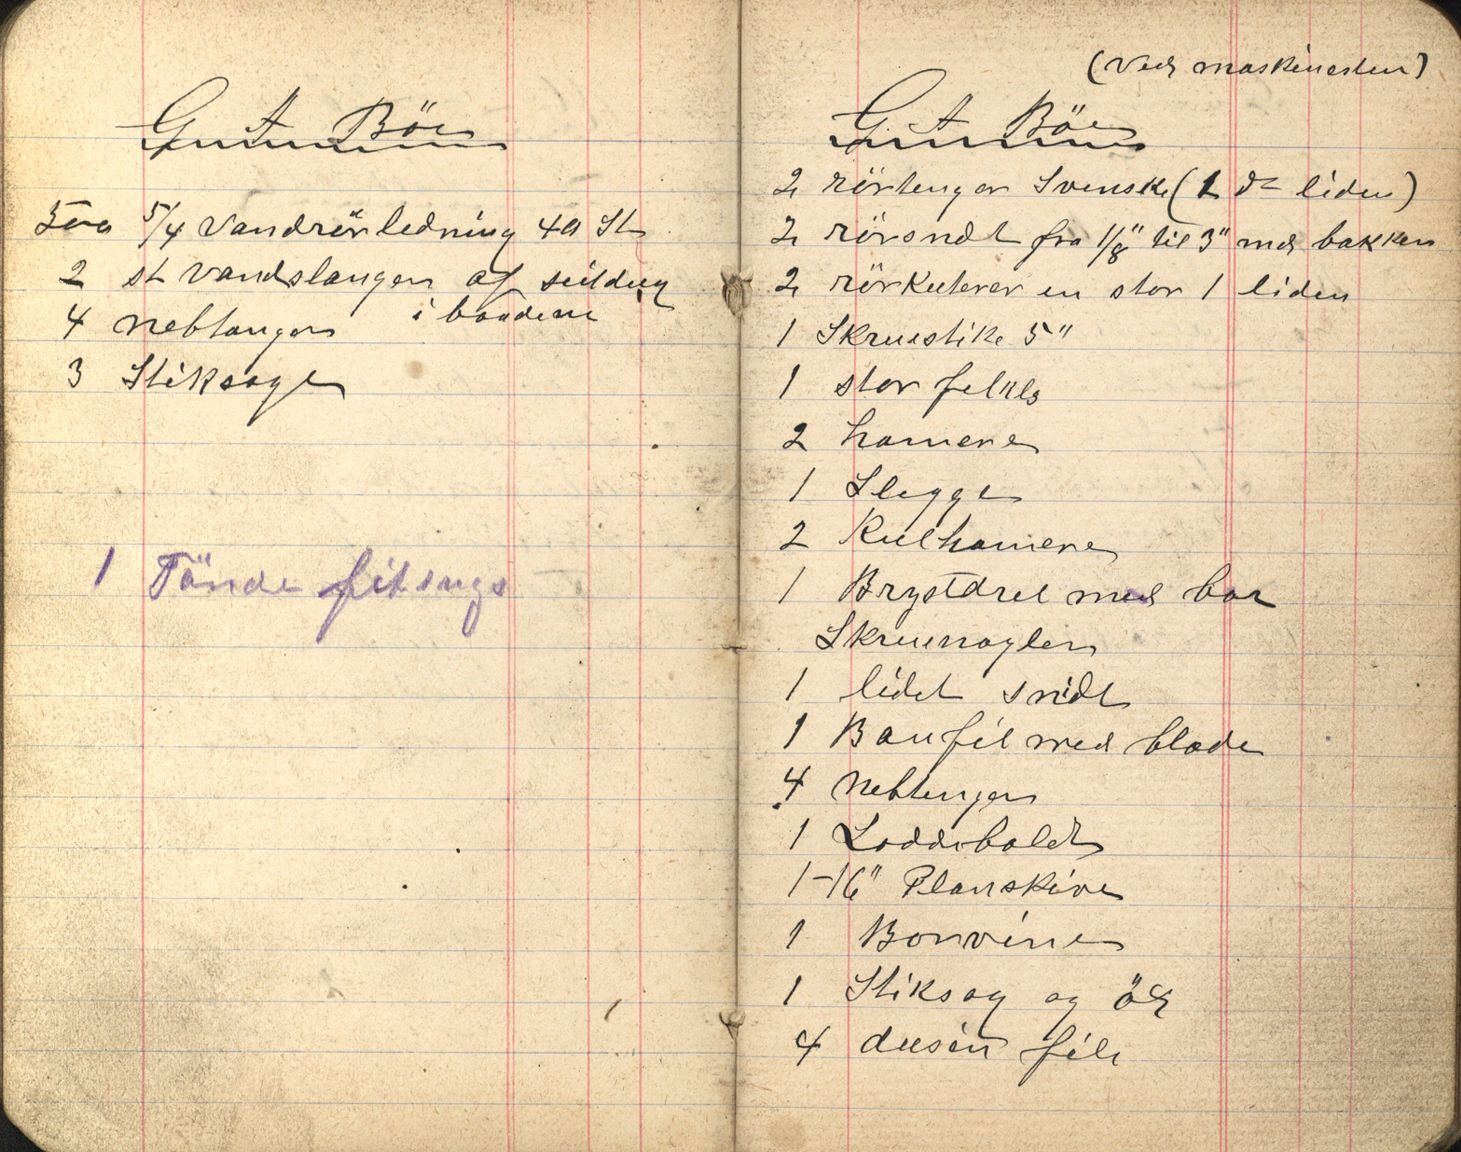 G. A. Böe
5/4 Vandrörledning 40 St
2 st vandslanger af seildug
i baadene
4 nebtanger
3 Stiksage
1 Tönde fitings
(ved maskinesten)
G. A. Böe
2 rörtenger Svenske (1 do liden)
2 rörsnidt fra 1/8" til 3" med bakken
2 rörkuterer en stor 1 liden
1 Skruestike 5"
1 stor felkls
2 hamere
1 Slegge
2 Kulhamere
1 Brystdrel med bor
Skruenogler
1 lidet snidt
1 Baufil med blade
4 nebtenger
1 Loddeboldt
1-16" Planskive
1 Borvine
1 Stiksag og öks
4 dusin file